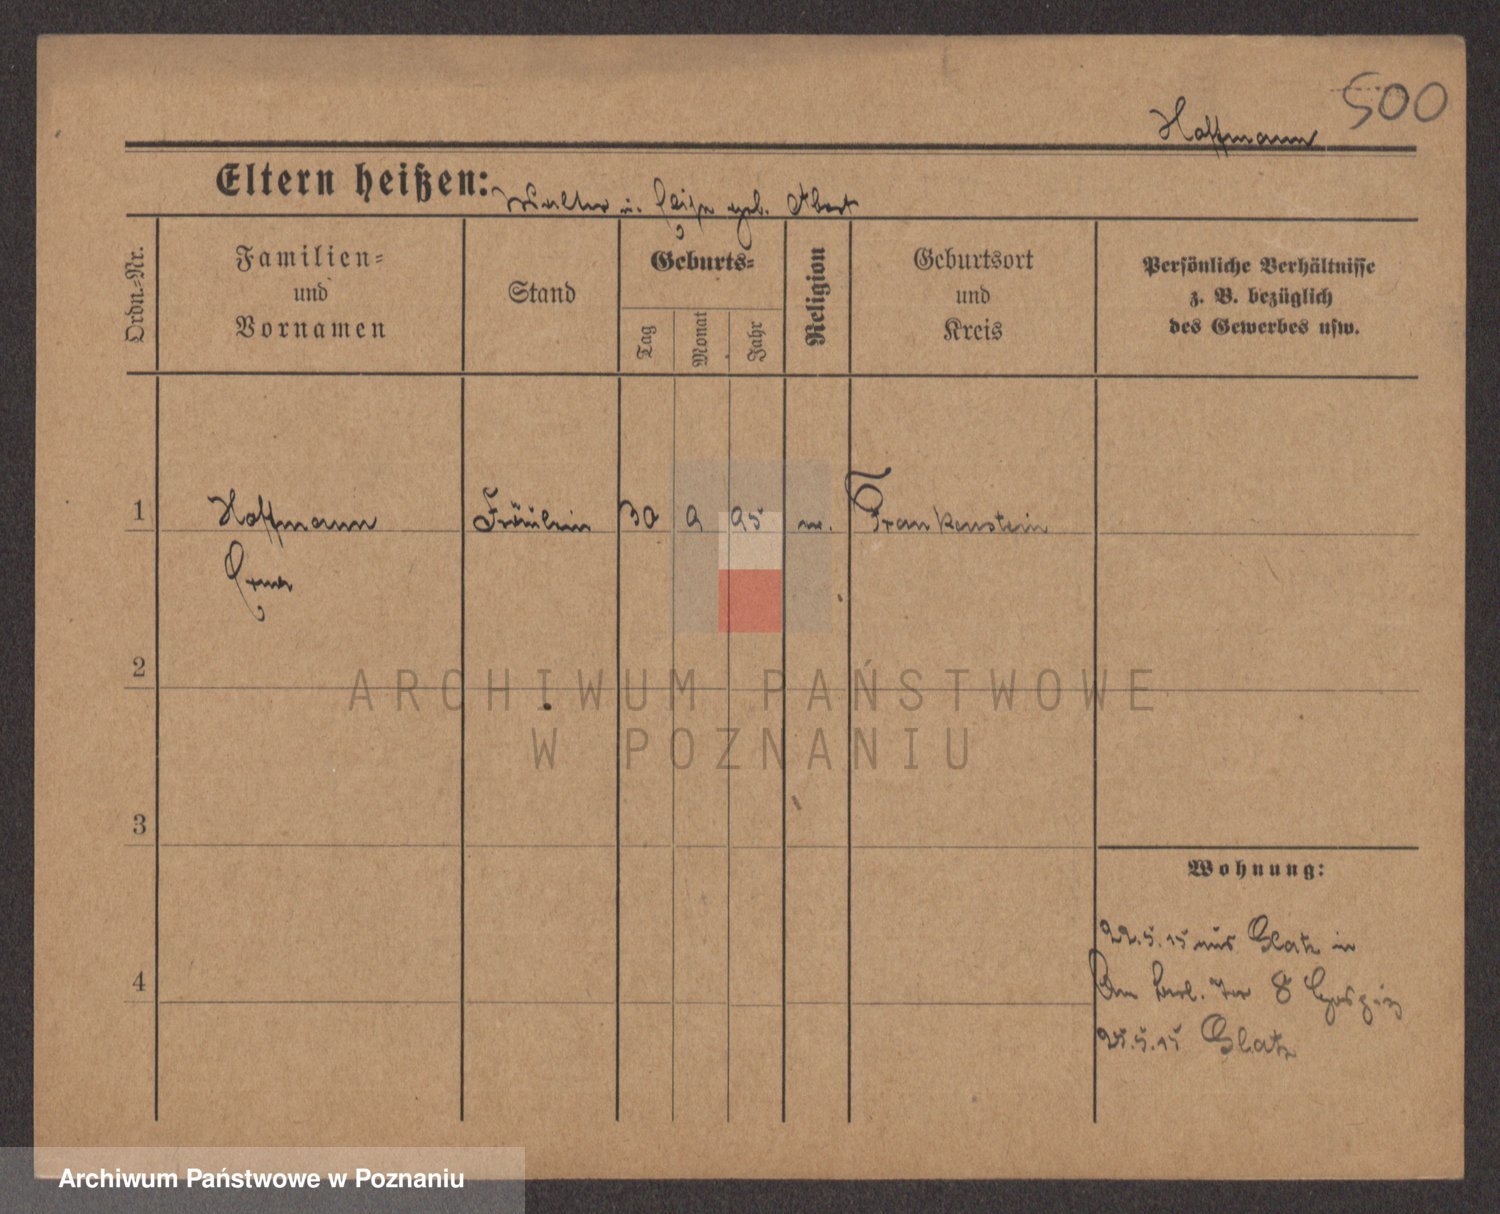 500
Hoffmann
Eltern heißen: Walter u. Luise geb. Abert
Ordn.-Nr.
Familien-
und
Vornamen
Stand
Geburts-
Tag
Monat
Jahr
Religion
Geburtsort
und
Kreis
Persönliche Verhältnisse
z. B. bezüglich
des Gewerbes usw.
1 Hoffmann Fräulein 30 9 95 ev. Frankenstein
Erna
2
3
4
Wohnung:
22.5.15 aus Glatz in
Am Berl. Tor 8 Hospiz
25.5.15 Glatz
ARCHIWUM PAŃSTWOWE
W POZNANIU
Archiwum Państwowe w Poznaniu